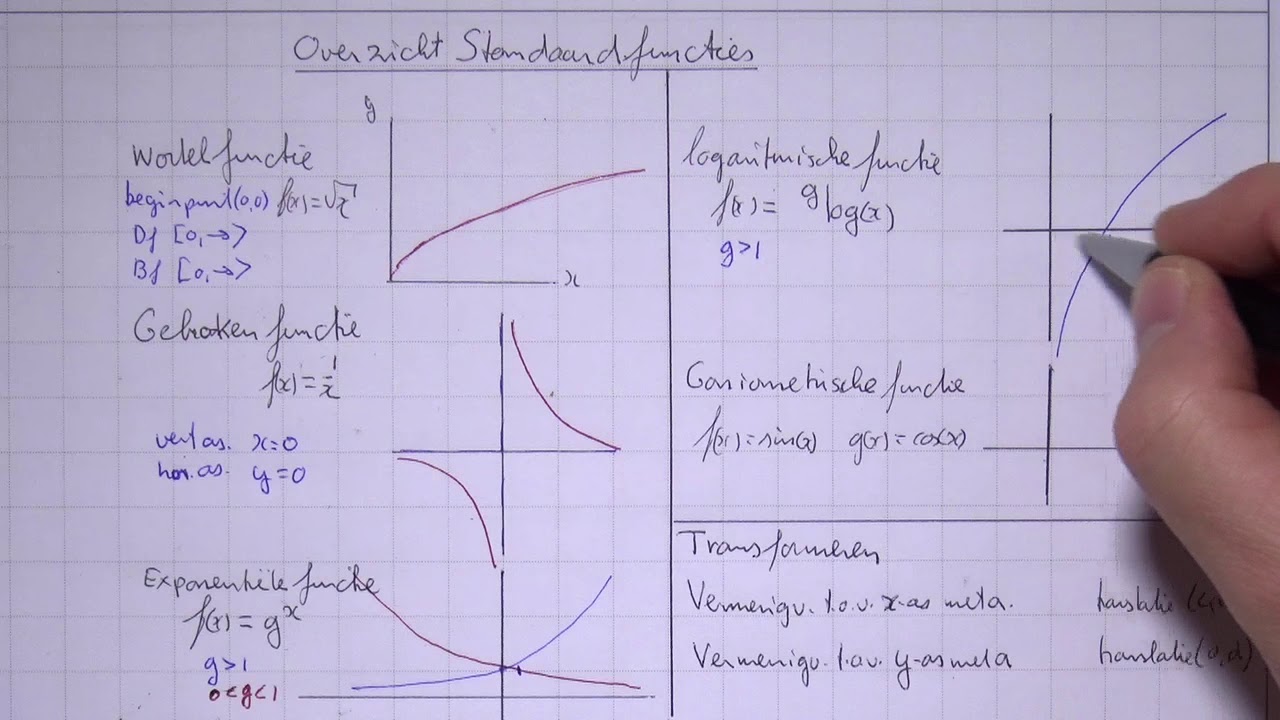 Overzicht Standaardfuncties
Wortelfunctie
beginpunt (0,0) f(x)=√x
Df [0,→>
Bf [0,→>
y
x
Gebroken functie
f(x)=1/x
vert as. x=0
hor. as. y=0
Exponentiële functie
f(x) = g^x
g>1
0<g<1
logaritmische functie
f(x)= ᵍlog(x)
g>1
Goniometrische functie
f(x)=sin(x) g(x)=cos(x)
Transformeren
Vermenigv. t.o.v. x-as met a. translatie
Vermenigv. t.o.v. y-as met a translatie(0,d)